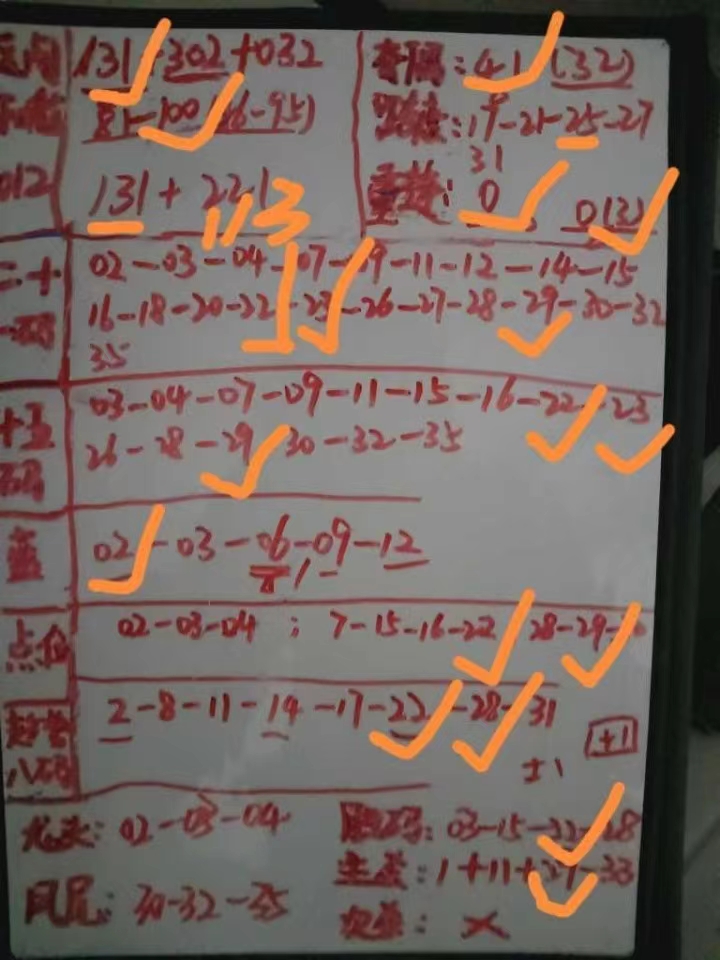 131-302+032
81-100(86-95)
012 131+221
113
奇偶:41(32)
跨度:19-21-25-27
31
重叠:0 0(3)
二十一码 02-03-04-07-09-11-12-14-15
16-18-20-22-23-26-27-28-29-30-32
35
十五码 03-04-07-09-11-15-16-22-23
26-28-29-30-32-35
蓝 02-03-06-09-12
点位 02-03-04;7-15-16-22 28-29-30
八码 2-8-11-14-17-22-28-31
±1 +1
龙头:02-03-04
凤尾:30-32-35
胆码:03-15-22-28
1+11+29-33